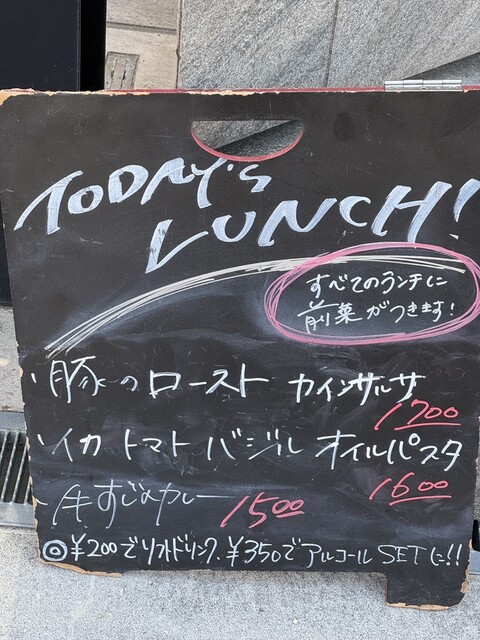 TODAY'S
LUNCH!
すべてのランチに
前菜がつきます!
・豚のロースト カインサルサ
1700
・イカ トマト バジル オイルパスタ
1600
・牛すじのカレー 1500
◎¥200でソフトドリンク、¥350でアルコールSETに!!